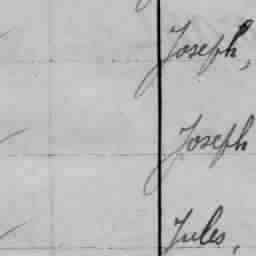 Joseph,
Joseph
Jules,